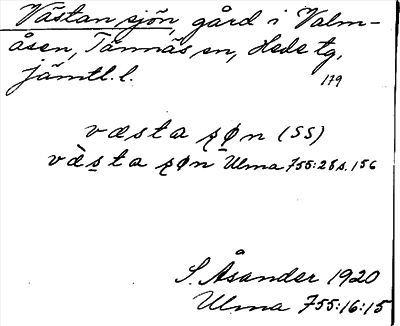 Västan sjön, gård i Valm-
åsen, Tännäs sn, Hede tg,
Jämtl. l.
179
væsta ʂøn (SS)
væ̀sta ʂøn Ulma 755:28 s. 156
S. Åsander 1920
Ulma 755:16:15